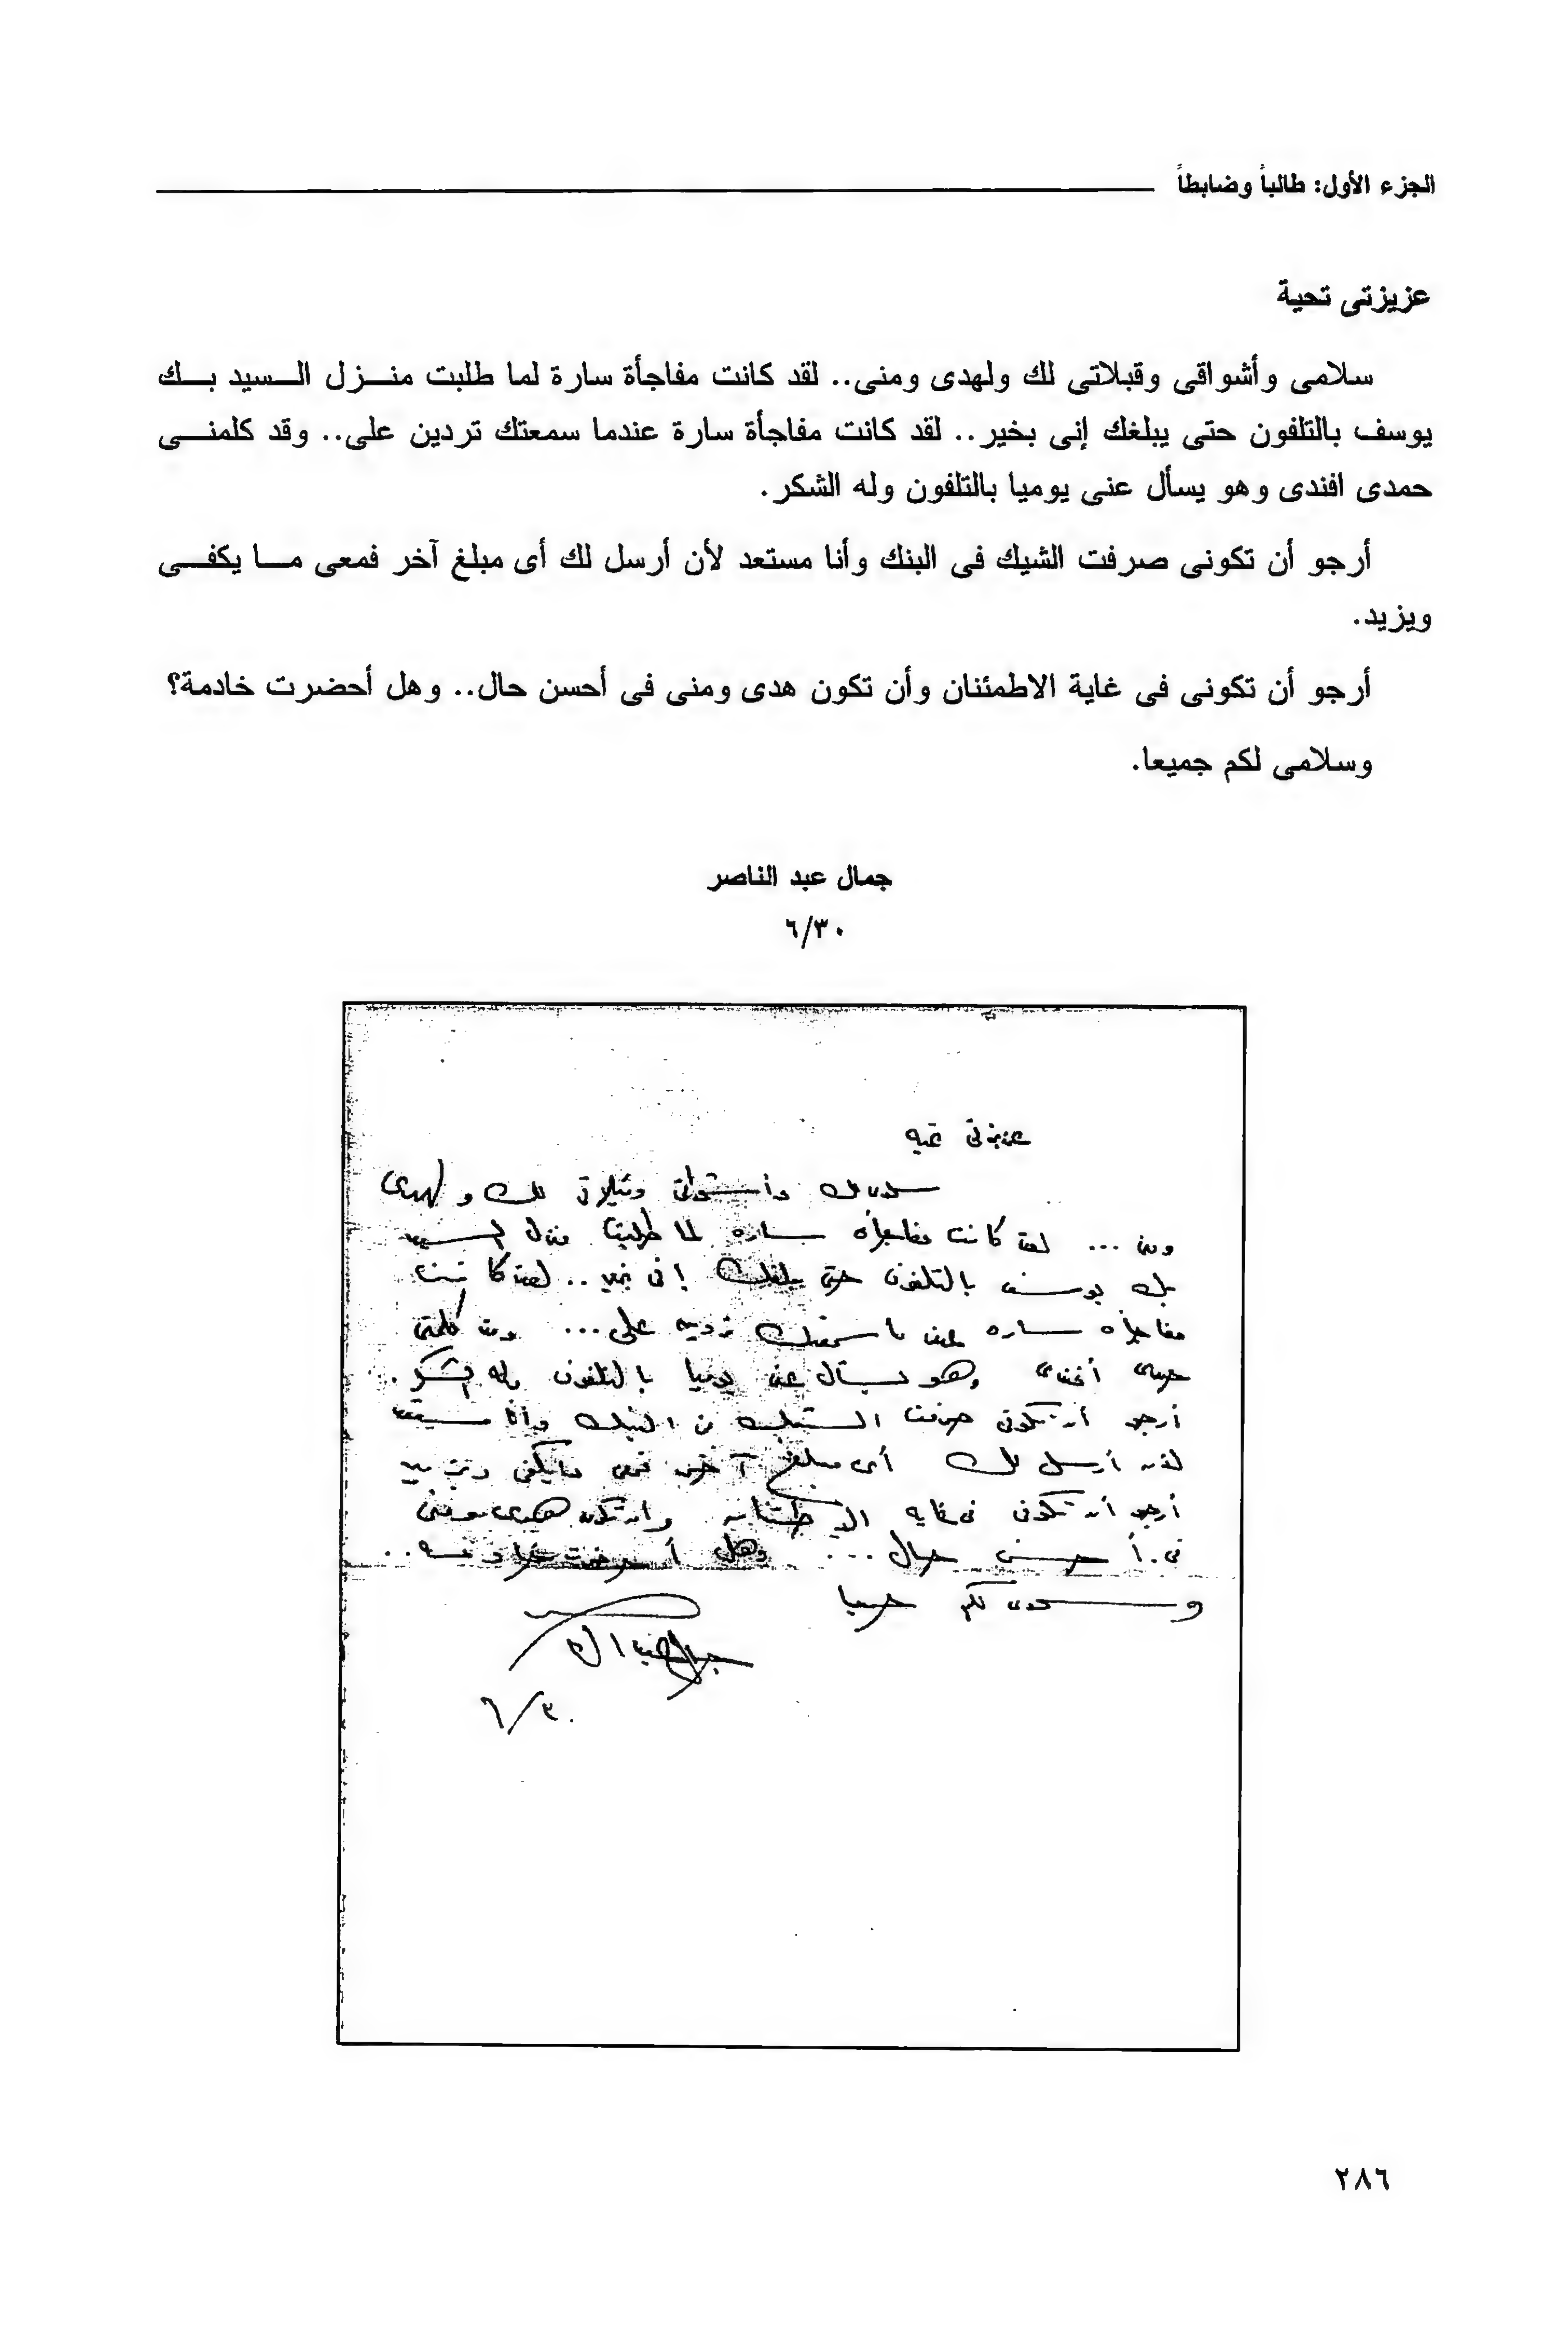 الجزء الأول: طالباً وضابطاً
عزيزتى تحية
سلامى وأشواقى وقبلاتى لك ولهدى ومنى.. لقد كانت مفاجأة سارة لما طلبت منزل السيد بك
يوسف بالتلفون حتى يبلغك إنى بخير.. لقد كانت مفاجأة سارة عندما سمعتك تردين على.. وقد كلمنى
حمدى افندى وهو يسأل عنى يوميا بالتلفون وله الشكر.
أرجو أن تكونى صرفت الشيك فى البنك وأنا مستعد لأن أرسل لك أى مبلغ آخر فمعى ما يكفى
ويزيد.
أرجو أن تكونى فى غاية الاطمئنان وأن تكون هدى ومنى فى أحسن حال.. وهل أحضرت خادمة؟
وسلامى لكم جميعا.
جمال عبد الناصر
٦/٣٠
عزيزتى تحيه
سلامى وأشواقى وقبلاتى لك ولهدى
ومنى ... لقد كانت مفاجأه ساره لما طلبت منزل السيد
بك يوسف بالتلفون حتى يبلغك إنى بخير .. لقد كانت
مفاجأه ساره عندما سمعتك تردين على ... وقد كلمنى
حمدى أفندى وهو يسأل عنى يوميا بالتلفون وله الشكر .
أرجو أن تكونى صرفت الشيك من البنك وأنا مستعد
لأن أرسل لك أى مبلغ آخر فمعى ما يكفى ويزيد
أرجو أن تكونى فى غايه الاطمئنان وان تكون هدى ومنى
فى أحسن حال ... وهل أحضرت خادمه ..
وسلامى لكم جميعا
جمال عبد الناصر
٦/٣٠
٢٨٦